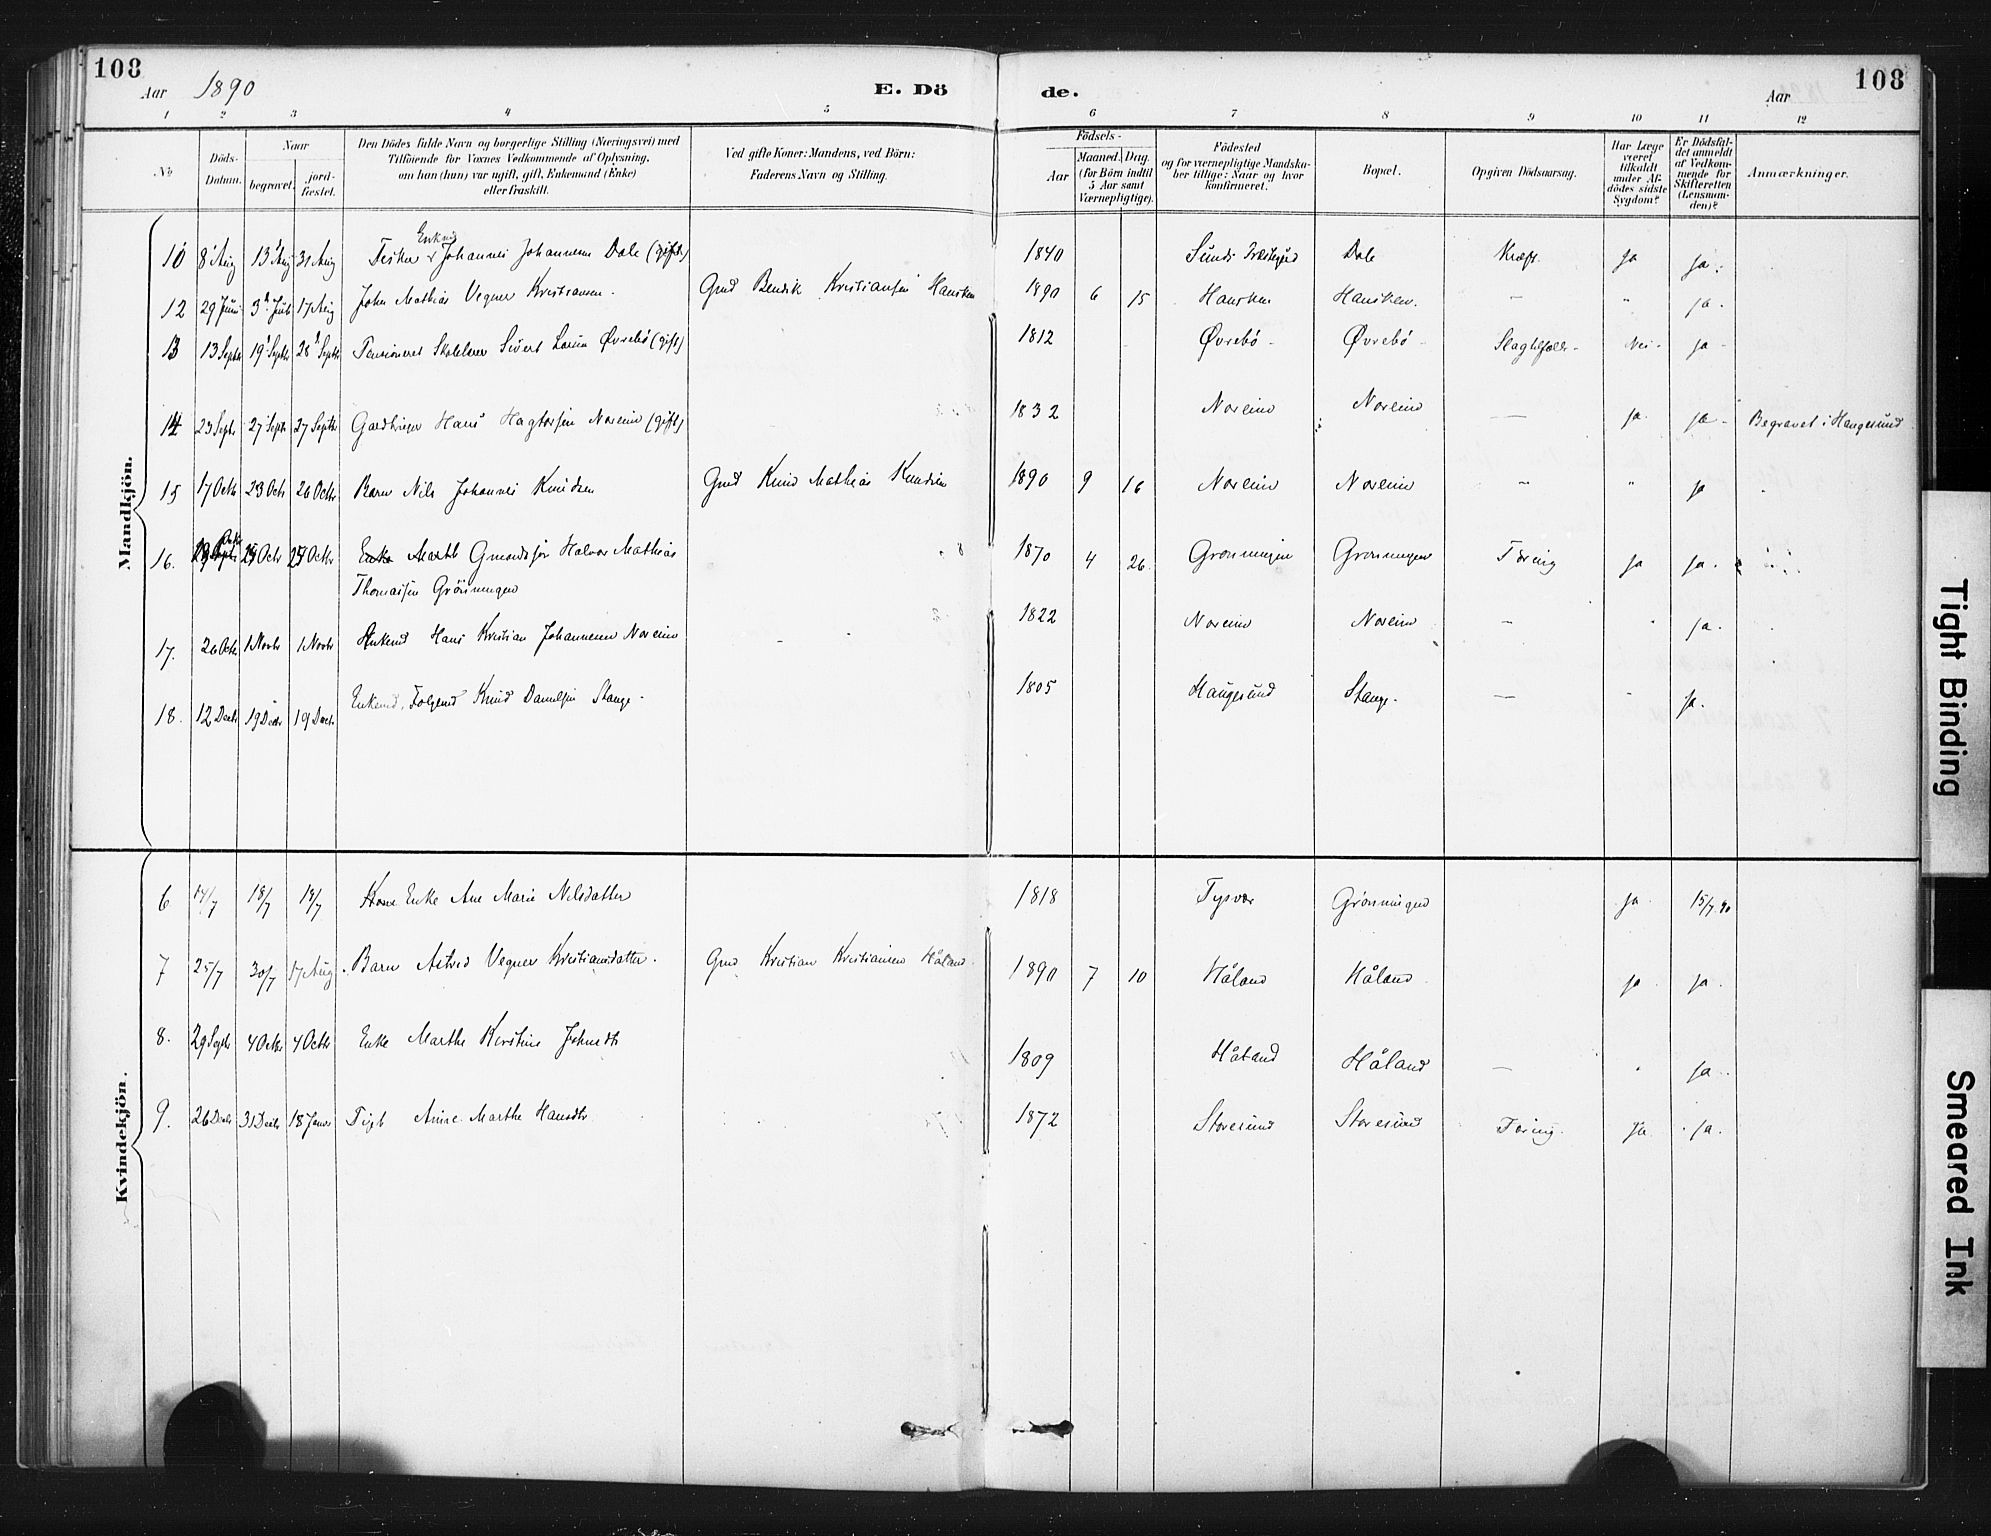 108
108
Aar 1890
E. Dö
de.
Aar
1 2 3 4 5 6 7 8 9 10 11 12
No
Döds-Datum.
Naar
begravet.
jord-fæstet.
Den Dödes fulde Navn og borgerlige Stilling (Næringsvei) med
Tilföiende for Voxnes Vedkommende af Oplysning,
om han (hun) var ugift, gift, Enkemand (Enke)
eller fraskilt.
Ved gifte Koner: Mandens, ved Börn:
Faderens Navn og Stilling.
Födsels-
Aar
Maaned. Dag.
(for Börn indtil
5 Aar samt
Værnepligtige).
Födested
og for værnepligtige Mandska-
ber tillige: Naar og hvor
konfirmeret.
Bopæl.
Opgiven Dödsaarsag.
Har Læge
været
tilkaldt
under Af-
dödes sidste
Sygdom?
Er Dödsfal-
det anmeldt
af Vedkom-
mende for
Skifteretten
(Lensman-
den)?
Anmærkninger.
Mandkjön.
10 8 Aug 13 Aug 31 Aug Fisker Johannes Johannesen Dale (gift) 1840 Dale Kræft. ja ja.
12 29 Juni 17 Aug John Mathias Vegner Kristiansen. Gmd Bendik Kristiansen Hansken 1890 6 15 Hansken Hansken. - " ja -
13 13 Septr 19 Septr 28 Septr Pensioneret Skolelærer Sivert Øvrebö (gift) 1812 Øvrebö - Øvrebö - Slagtilfælde - Nei - ja -
14 23 Septr 27 Septr 27 Septr Gaardbruger Hans Noreim (gift) 1832 Noreim Noreim — ja. ja - Begravet i Haugesund
15 17 Octr 23 Octr 26 Octr Barn Nils Johannes Knudsen Gmd Knud Mathias Knudsen 1890 9 16 Noreim Noreim - " ja
16. Octr 25 Octr Octr Enke Marth Gmandssøn Halvor Mathias 1870 4 26. Grönningen Grönningen Tæring ja ja.
Thomassen Grönningen
17. 26 Octr 1 Novbr 1 Novbr Enkemd Hans Kristian Johannesen Noreim 1822 Noreim Noreim - " ja.
18. 12 Decbr 19 Decbr 19 Decbr Enkemd, Folgemd Knud Danielsen Stange - 1805 Haugesund Stange - — " ja.
Kvindekjön.
6 14/7 18/7 18/7 Kone Enke Ane Marie Nilsdatter 1818 Tysvær Grönningen ja. 15/7 90
7 25/7 30/7 17 Aug. Barn Astrid Vegner Kristiansdatter. Gmd Kristian Kristiansen Håland. 1890 7 10 Håland Håland ja. ja.
8. 29 Septr 4 Octbr 4 Octbr Enke Marthe Kirstine Johnsdtr 1809 Håland Håland — " ja.
9. 26 Decbr 31 Decbr 18 Januar Pige Anne Marthe Hansdtr 1872 Storesund Storesund Tæring. Ja ja.
Tight Binding
Smeared Ink